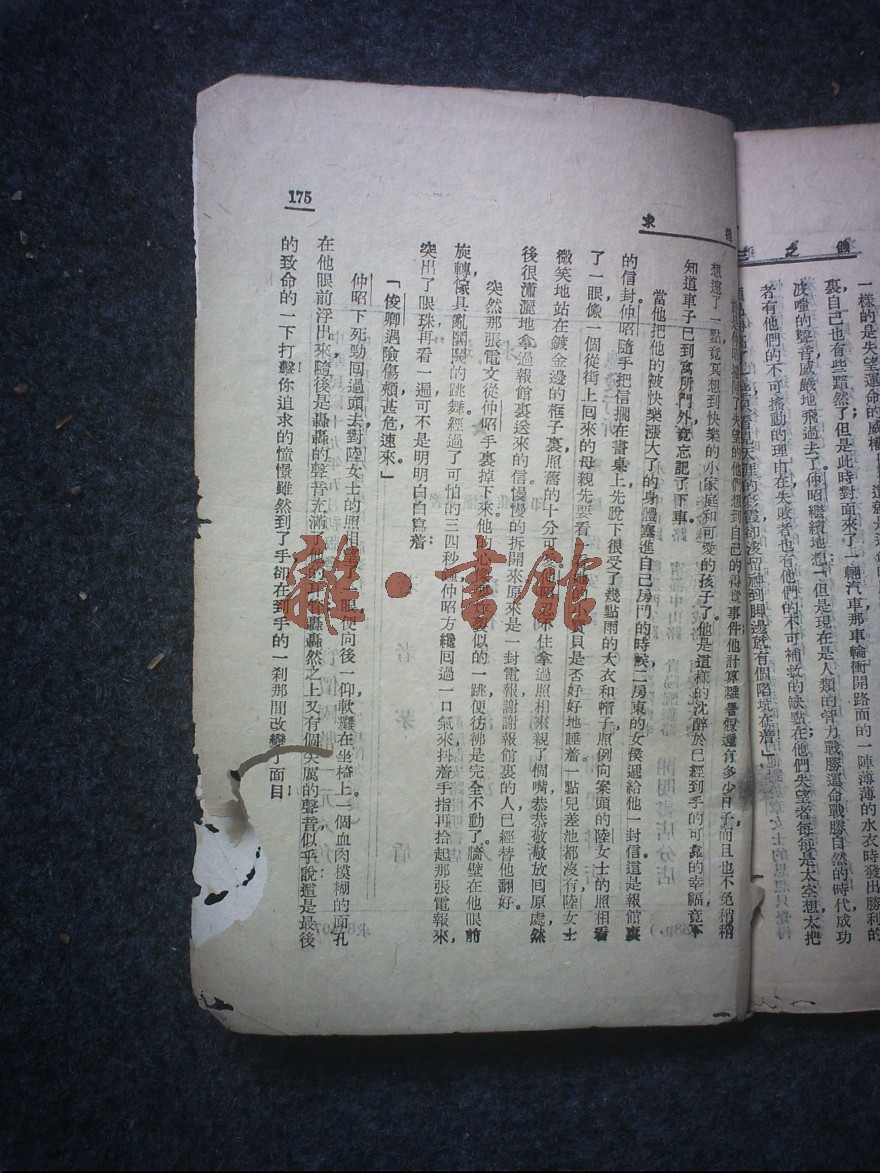 一樣的是失望運命的威權
裏自己也有些黯然了但是此時對面來了一輛汽車那車輪衝開路面的一陣薄薄的水衣時發出勝利的
波嗤的聲音威嚴地飛過去了仲昭繼續地想「但是現在是人類的智力戰勝運命戰勝自然的時代成功
者有他們的不可搖動的理由在失敗者也有他們的不可補救的缺點在他們失望者每每是太空想太把
追求
了失望的他們想到自己的得意事件他計算離暑假還有多少日子而且也不免稍稍
想遠了一點竟冥想到快樂的小家庭和可愛的孩子了他是這樣的沈醉於已經到手的可靠的幸福竟不
知道車子已到寓所門外竟忘記了下車。
當他把他的被快樂漲大了的身體塞進自己房門的時候二房東的女僕遞給他一封信這是報館裏
的信封仲昭隨手把信擱在書桌上先脫下很受了幾點雨的大衣和帽子照例向案頭的陸女士的照相看
了一眼像一個從街上回來的母親先要看一看她的小寶貝是否好好地睡着一點兒差池都沒有陸女士
微笑地站在鍍金邊的框子裏照舊的十分可愛仲昭忍不住拿過照相來親了個嘴恭恭敬敬放回原處然
後很瀟灑地拿過報館裏送來的信慢慢的拆開來原來是一封電報謝謝報館裏的人已經替他翻好。
突然那張電文從仲昭手裏掉下來。他的心像要炸裂似的一跳便彷彿是完全不動了。牆壁在他眼前
旋轉傢具亂鬨鬨的跳舞經過了可怕的三四秒鐘仲昭方纔回過一口氣來抖着手指再拾起那張電報來，
突出了眼珠再看一遍可不是明明白白寫着：
「俊卿遇險傷頰甚危速來。」
仲昭下死勁回過頭去對陸女士的照相看了一眼便向後一仰軟癱在坐椅上一個血肉模糊的面孔
在他眼前浮出來隨後是轟轟的聲音充滿了他的耳管轟轟然之上又有個尖厲的聲音似乎說這是最後
的致命的一下打擊！你追求的憧憬雖然到了手卻在到手的一剎那間改變了面目！
175
雜·書館